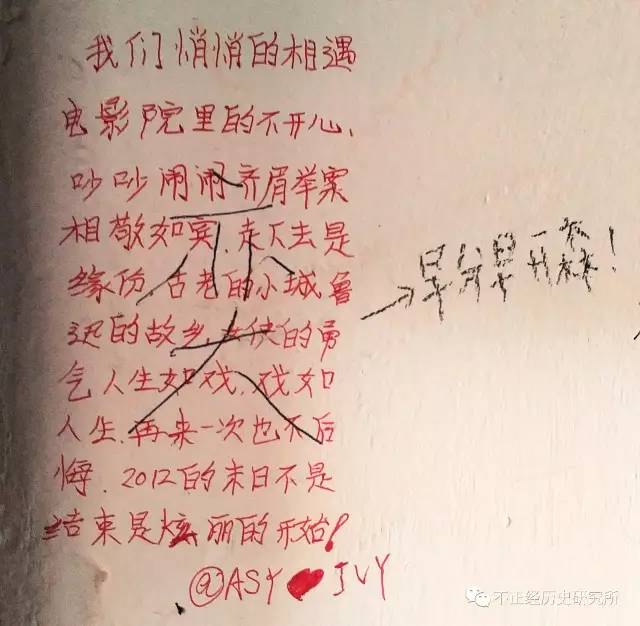 我们悄悄的相遇
电影院里的不开心、
吵吵闹闹齐眉举案
相敬如宾.走下去是
缘份 古老的小城鲁
迅的故乡 的勇
气人生如戏.戏如
人生.再来一次也不后
悔.2012的末日不是
结束是炫丽的开始!
@ASY JVY
→早分早
不正经历史研究所